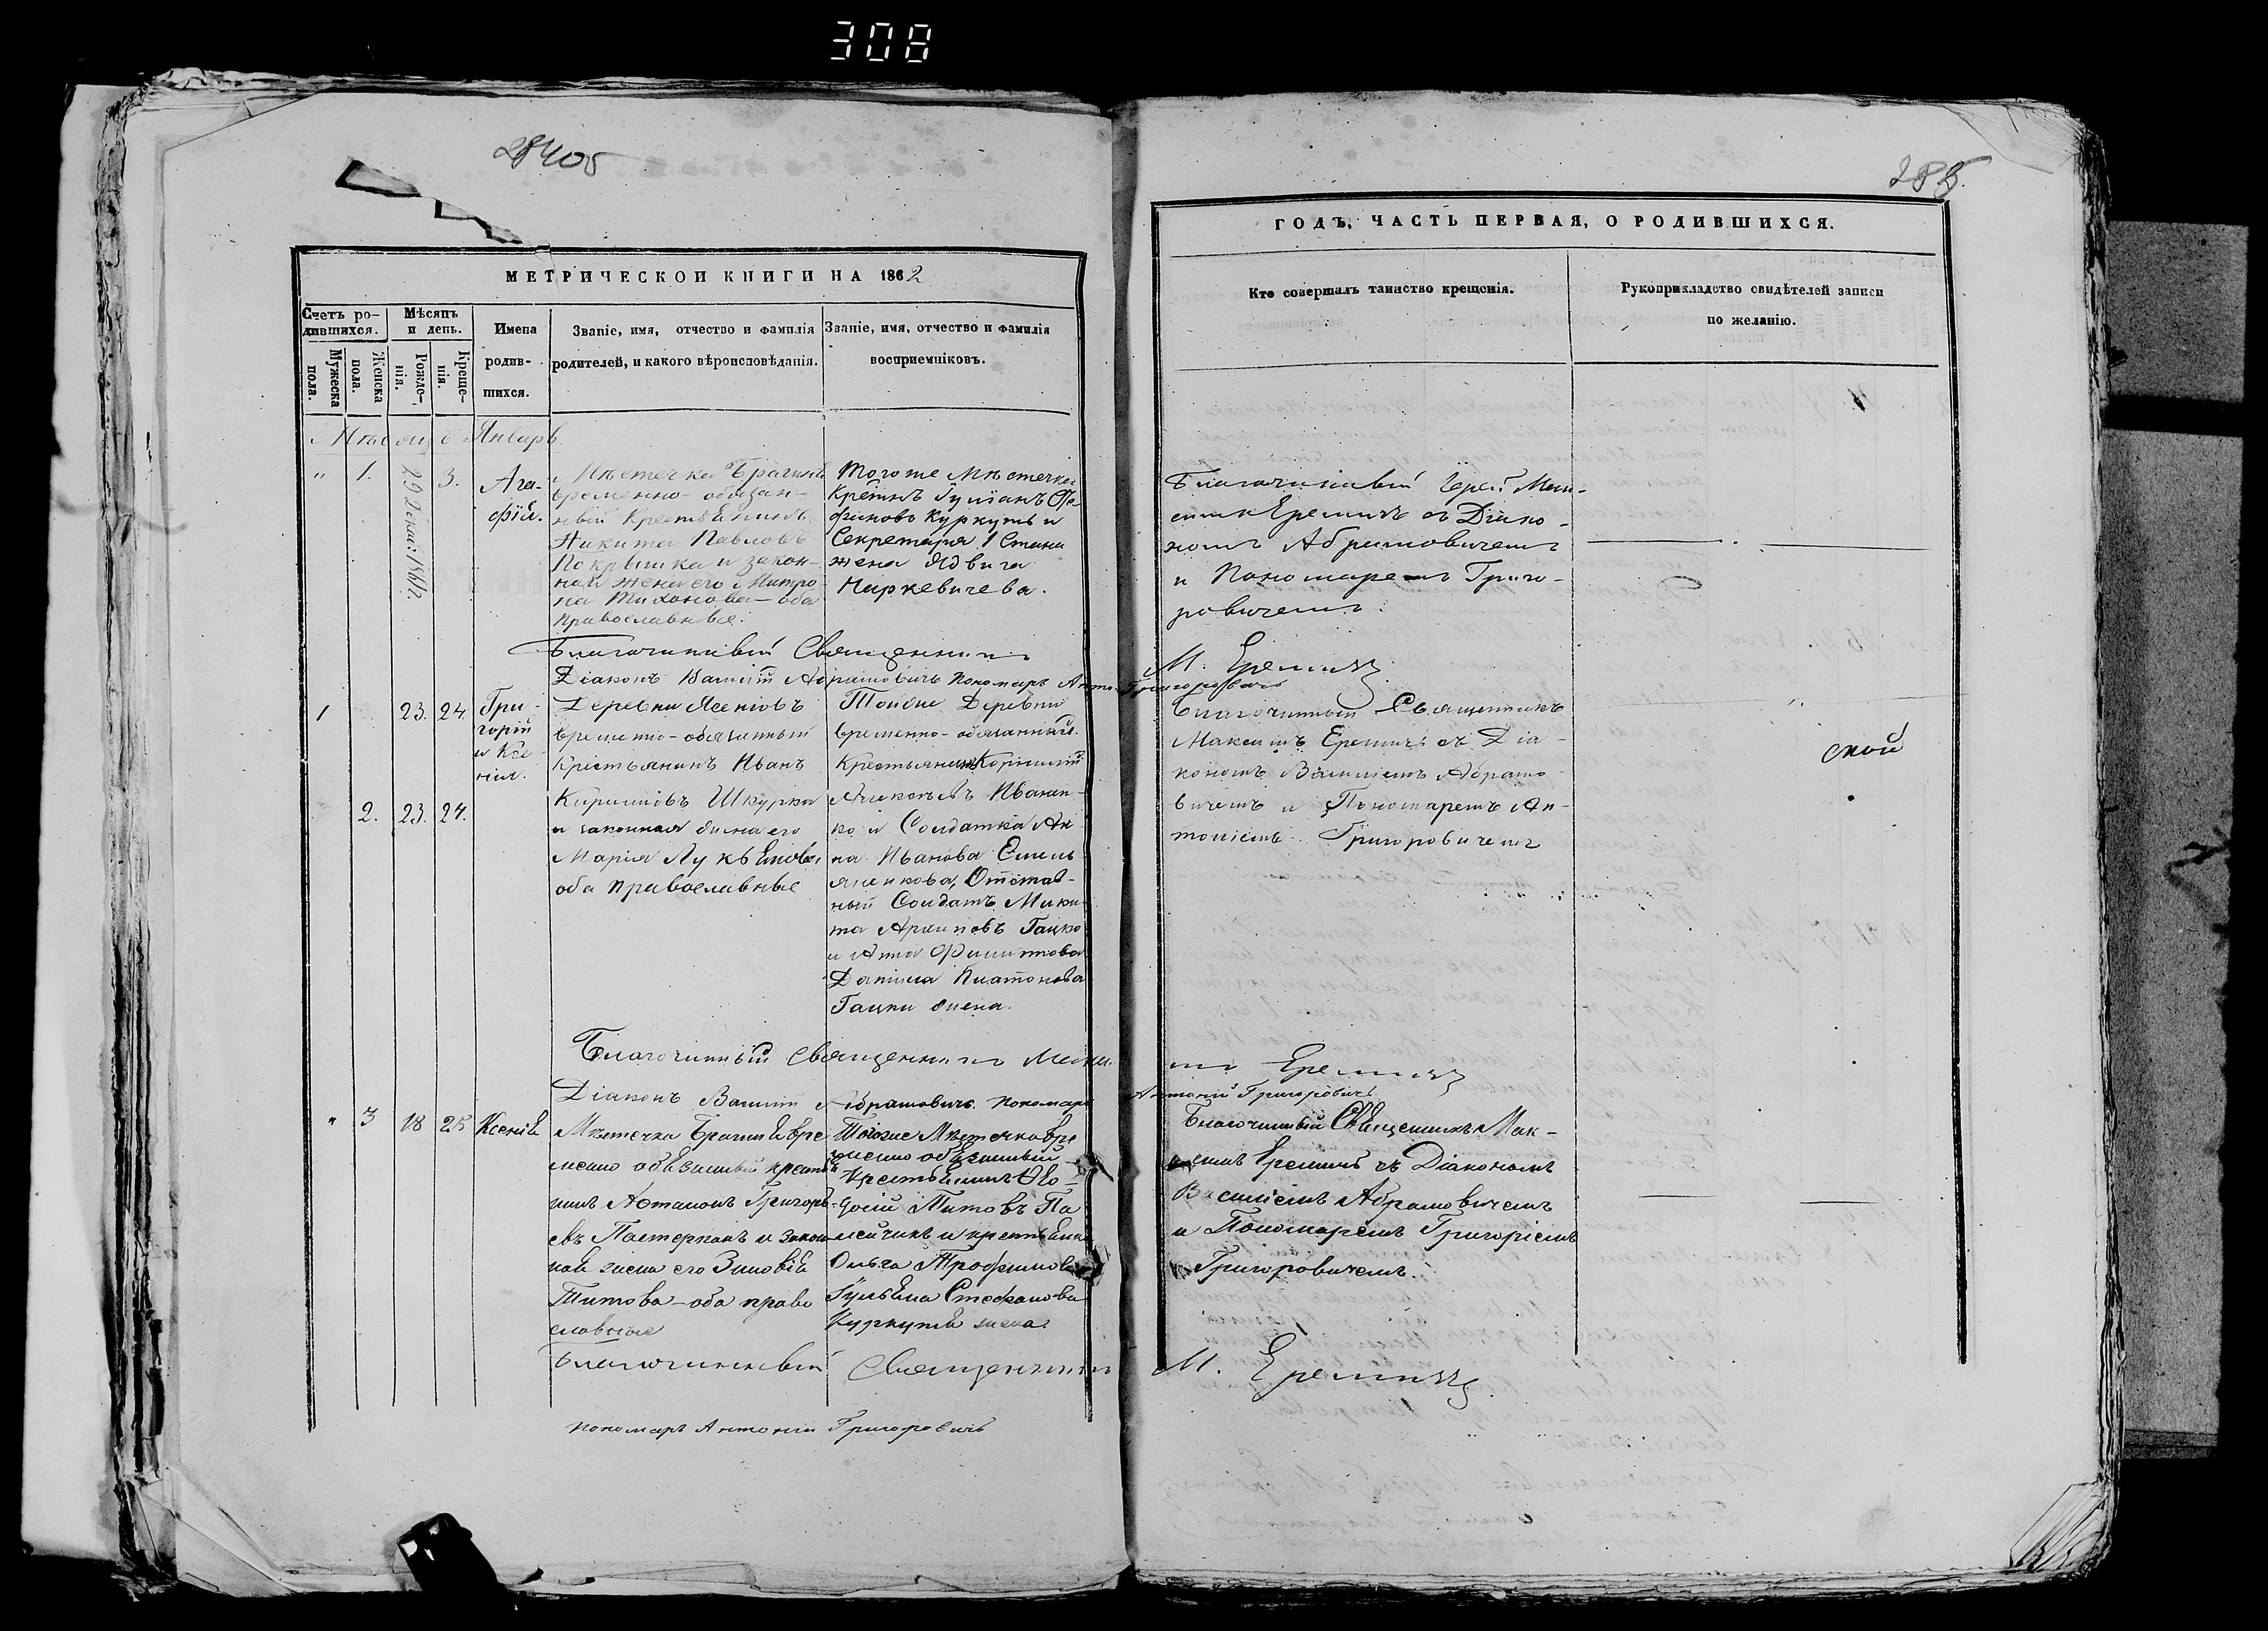 308
28405
285.
МЕТРИЧЕСКОЙ КНИГИ НА 1862
ГОДЪ, ЧАСТЬ ПЕРВАЯ, О РОДИВШИХСЯ.
Счетъ ро-
дившихся.
Мужеска пола.
Женска пола.
Мѣсяцъ
и день.
Рожде-
нія.
Креще-
нія.
Имена
родив-
шихся.
Званіе, имя, отчество и фамилія
родителей, и какого вѣроисповѣданія.
Званіе, имя, отчество и фамилія
воспріемниковъ.
Кто совершалъ таинство крещенія.
Рукоприкладство свидѣтелей записи
по желанію.
Мѣсяцъ Январь.
" 1. 29 Декаб: 3.
Ага-
фія.
Мѣстечка Брагина
временно-обязан-
ный Крестьянинъ
Никита Павловъ
Покрышка и закон-
ная жена его Матро
на Тихонова-оба
православные.
Того же Мѣстечка
Крестнъ Гуліанъ Сте
фановъ Куркуть и
Секретаря 1 Стана
жена Ядвига
Наркевичева.
Благочинный Іерей Мак-
симъ Еремичъ съ Діако-
номъ Абрамовичемъ
и Пономаремъ Григо-
ровичемъ.
Благочинный Священникъ М. Еремичъ
Діаконъ Василій Абрамовичъ Пономарь Антоній Григоровичъ
1 23. 24.
Гри-
горій
и Ксе-
нія.
2. 23. 24.
Деревни Ясеновъ
временно-обязанный
Крестьянинъ Иванъ
Кириловъ Шкурка
и законная жена его
Марія Лукьянова
оба православные
Тойже Деревни
временно-обязанный
Крестьянинъ Корнилій
Яковлевъ Иванен-
ко и Солдатка Ан-
на Иванова Емель
яненкова, Отстав-
ный Солдатъ Мики
та Архиповъ Гацко
и Анна Филиппова
Данила Платонова
Гацки жена.
Благочинный Священникъ
Максимъ Еремичъ съ Діа-
кономъ Василіемъ Абрамо
вичемъ и Пономаремъ Ан-
тоніемъ Григоровичемъ
ской
Благочинный Священникъ Макси
мъ Еремичъ
Діаконъ Василій Абрамовичъ. Пономарь Антоній Григоровичъ
" 3 18 25 Ксенія
Мѣстечка Брагина вре
менно обязанный кресть
янинъ Антонъ Григорь-
евъ Пастернакъ и закон
ная жена его Зиновія
Титова-оба право
славные
Тогоже Мѣстечка вре
менно обязанный
Крестьянинъ Ѳео-
досій Титовъ Па
лейчикъ и крестьянка
Ольга Трофимова
Гульяна Стефанова
Куркутя жена
Благочинный Священникъ Мак-
симъ Еремичъ съ Діакономъ
Василіемъ Абрамовичемъ
и Пономаремъ Григоріемъ
Григоровичемъ.
Благочинный Священникъ М. Еремичъ
Пономарь Антоній Григоровичъ